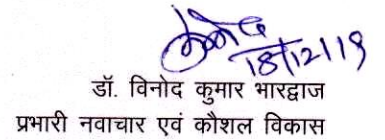 18/12/19
डॉ. विनोद कुमार भारद्वाज
प्रभारी नवाचार एवं कौशल विकास